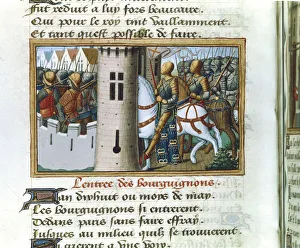 fut reduit a luy fors beaucaire
Qui pour le roy tint vaillamment
Et tant quest possible de faire.
Lentree des bourguignons.
Lan dixhuit ou moys de may
Les Bourguignons si entrerent
Dedans paris sans faire effray
Jusques au milieu quilz se trouverent